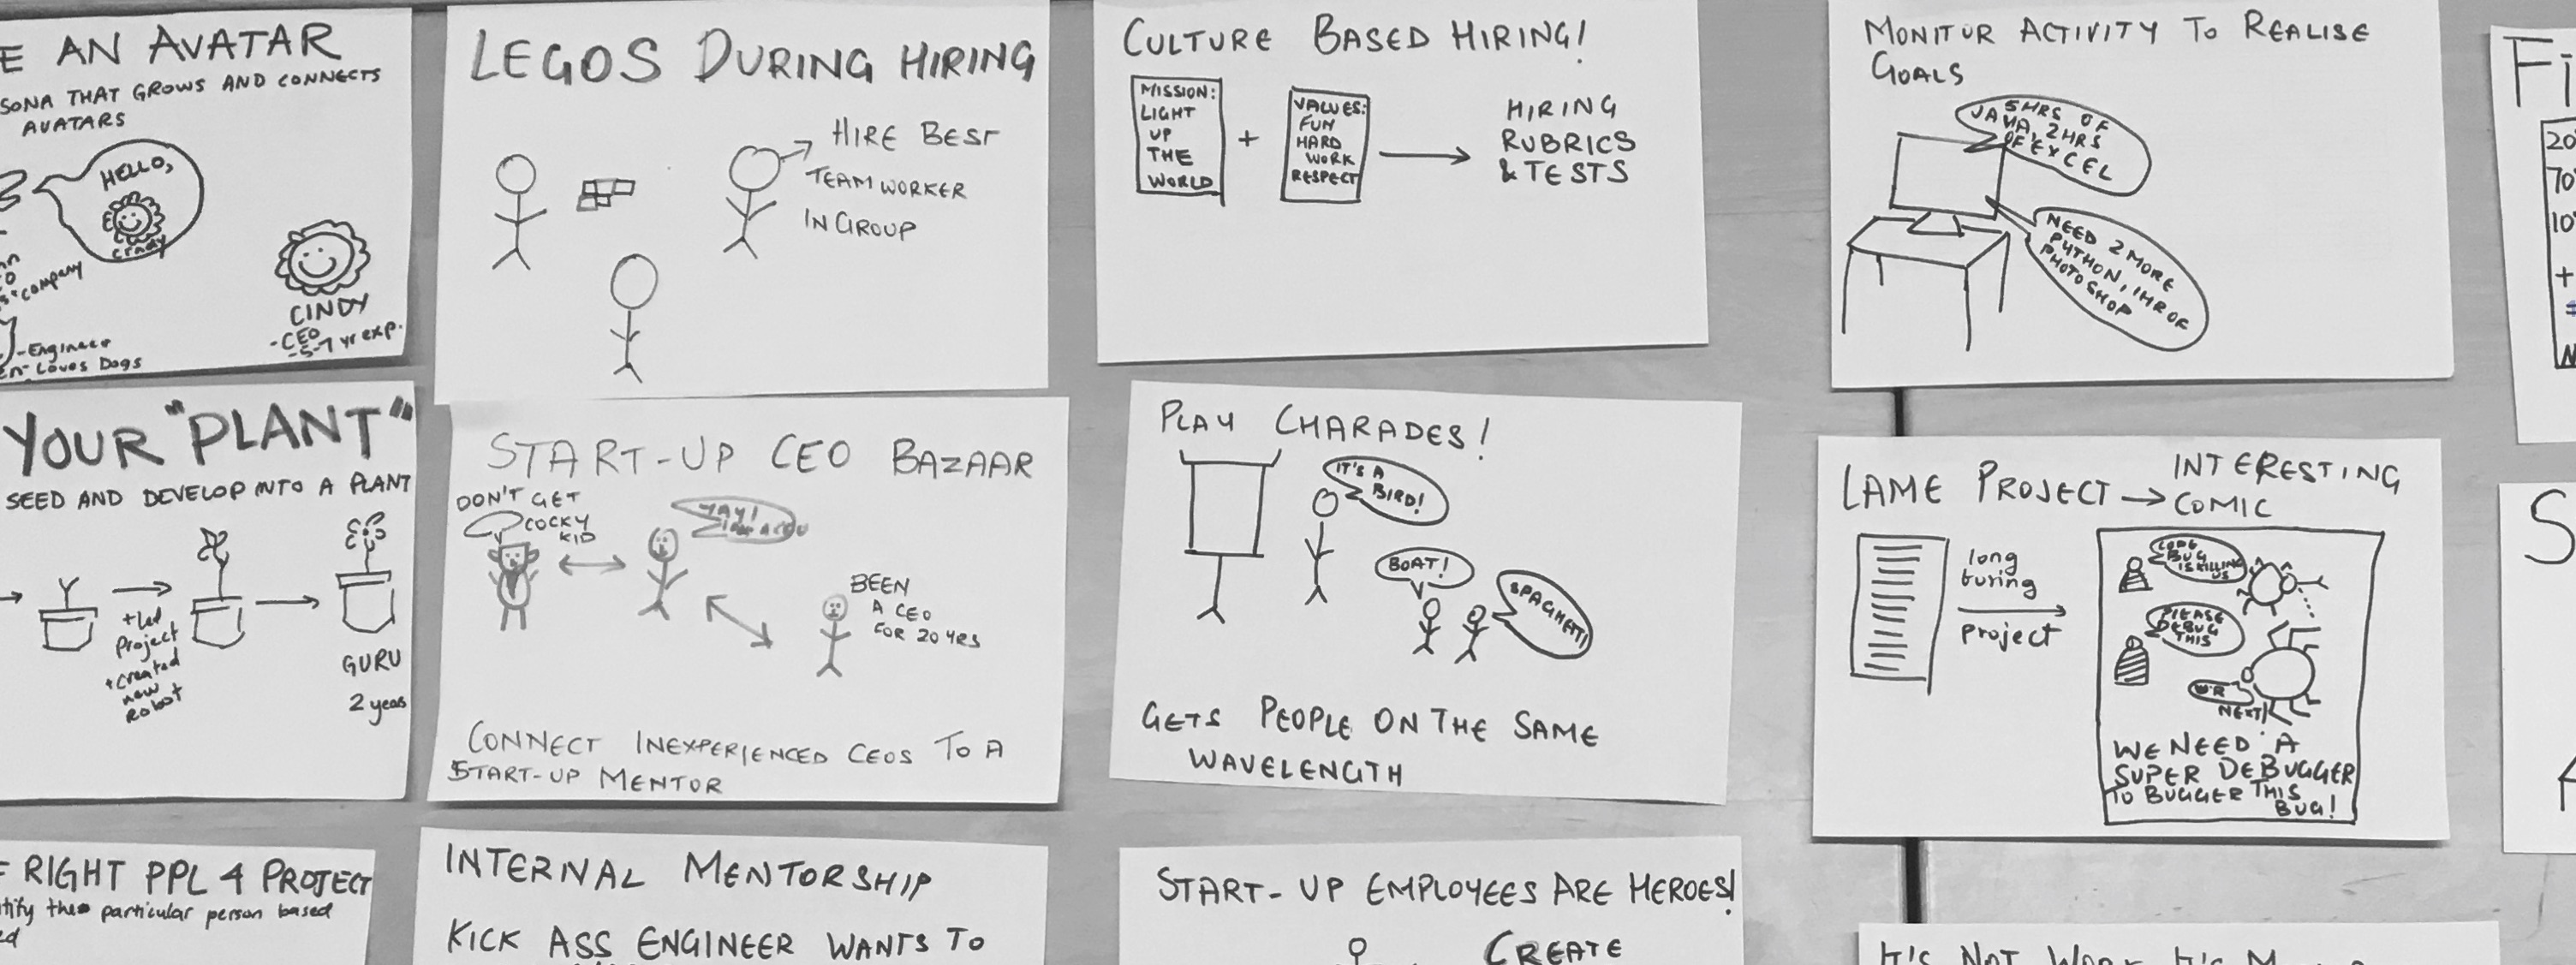 E AN AVATAR
SONA THAT GROWS AND CONNECTS
AVATARS
HELLO,
Cindy
company
CINDY
-CEO
-5-7 yr exp.
-Engineer
Loves Dogs
LEGOS DURING HIRING
HIRE BEST
TEAM WORKER
IN GROUP
CULTURE BASED HIRING!
MISSION:
LIGHT
UP
THE
WORLD
+
VALUES:
FUN
HARD
WORK
RESPECT
HIRING
RUBRICS
& TESTS
MONITOR ACTIVITY TO REALISE
GOALS
5HRS OF
JAVA, 2HRS
OF EXCEL
NEED 2 MORE
PYTHON, 1HR OF
PHOTOSHOP
Fi
20
70
10
+
YOUR "PLANT"
SEED AND DEVELOP INTO A PLANT
+Led
Project
+created
new
Robot
GURU
2 years
START-UP CEO BAZAAR
DON'T GET
COCKY
KID
YAY!
BEEN
A CEO
FOR 20 YRS
CONNECT INEXPERIENCED CEOS TO A
START-UP MENTOR
PLAY CHARADES!
IT'S A
BIRD!
BOAT!
SPAGHETTI
GETS PEOPLE ON THE SAME
WAVELENGTH
LAME PROJECT → INTERESTING
COMIC
long
buring
project
CODE
BUG
IS KILLING
US
PLEASE
DEBUG
THIS
UR
NEXT!
WE NEED A
SUPER DEBUGGER
TO BUGGER THIS
BUG!
S
RIGHT PPL 4 PROJECT
particular person based
INTERNAL MENTORSHIP
KICK ASS ENGINEER WANTS TO
START-UP EMPLOYEES ARE HEROES!
CREATE
IT'S NOT WORK IT'S